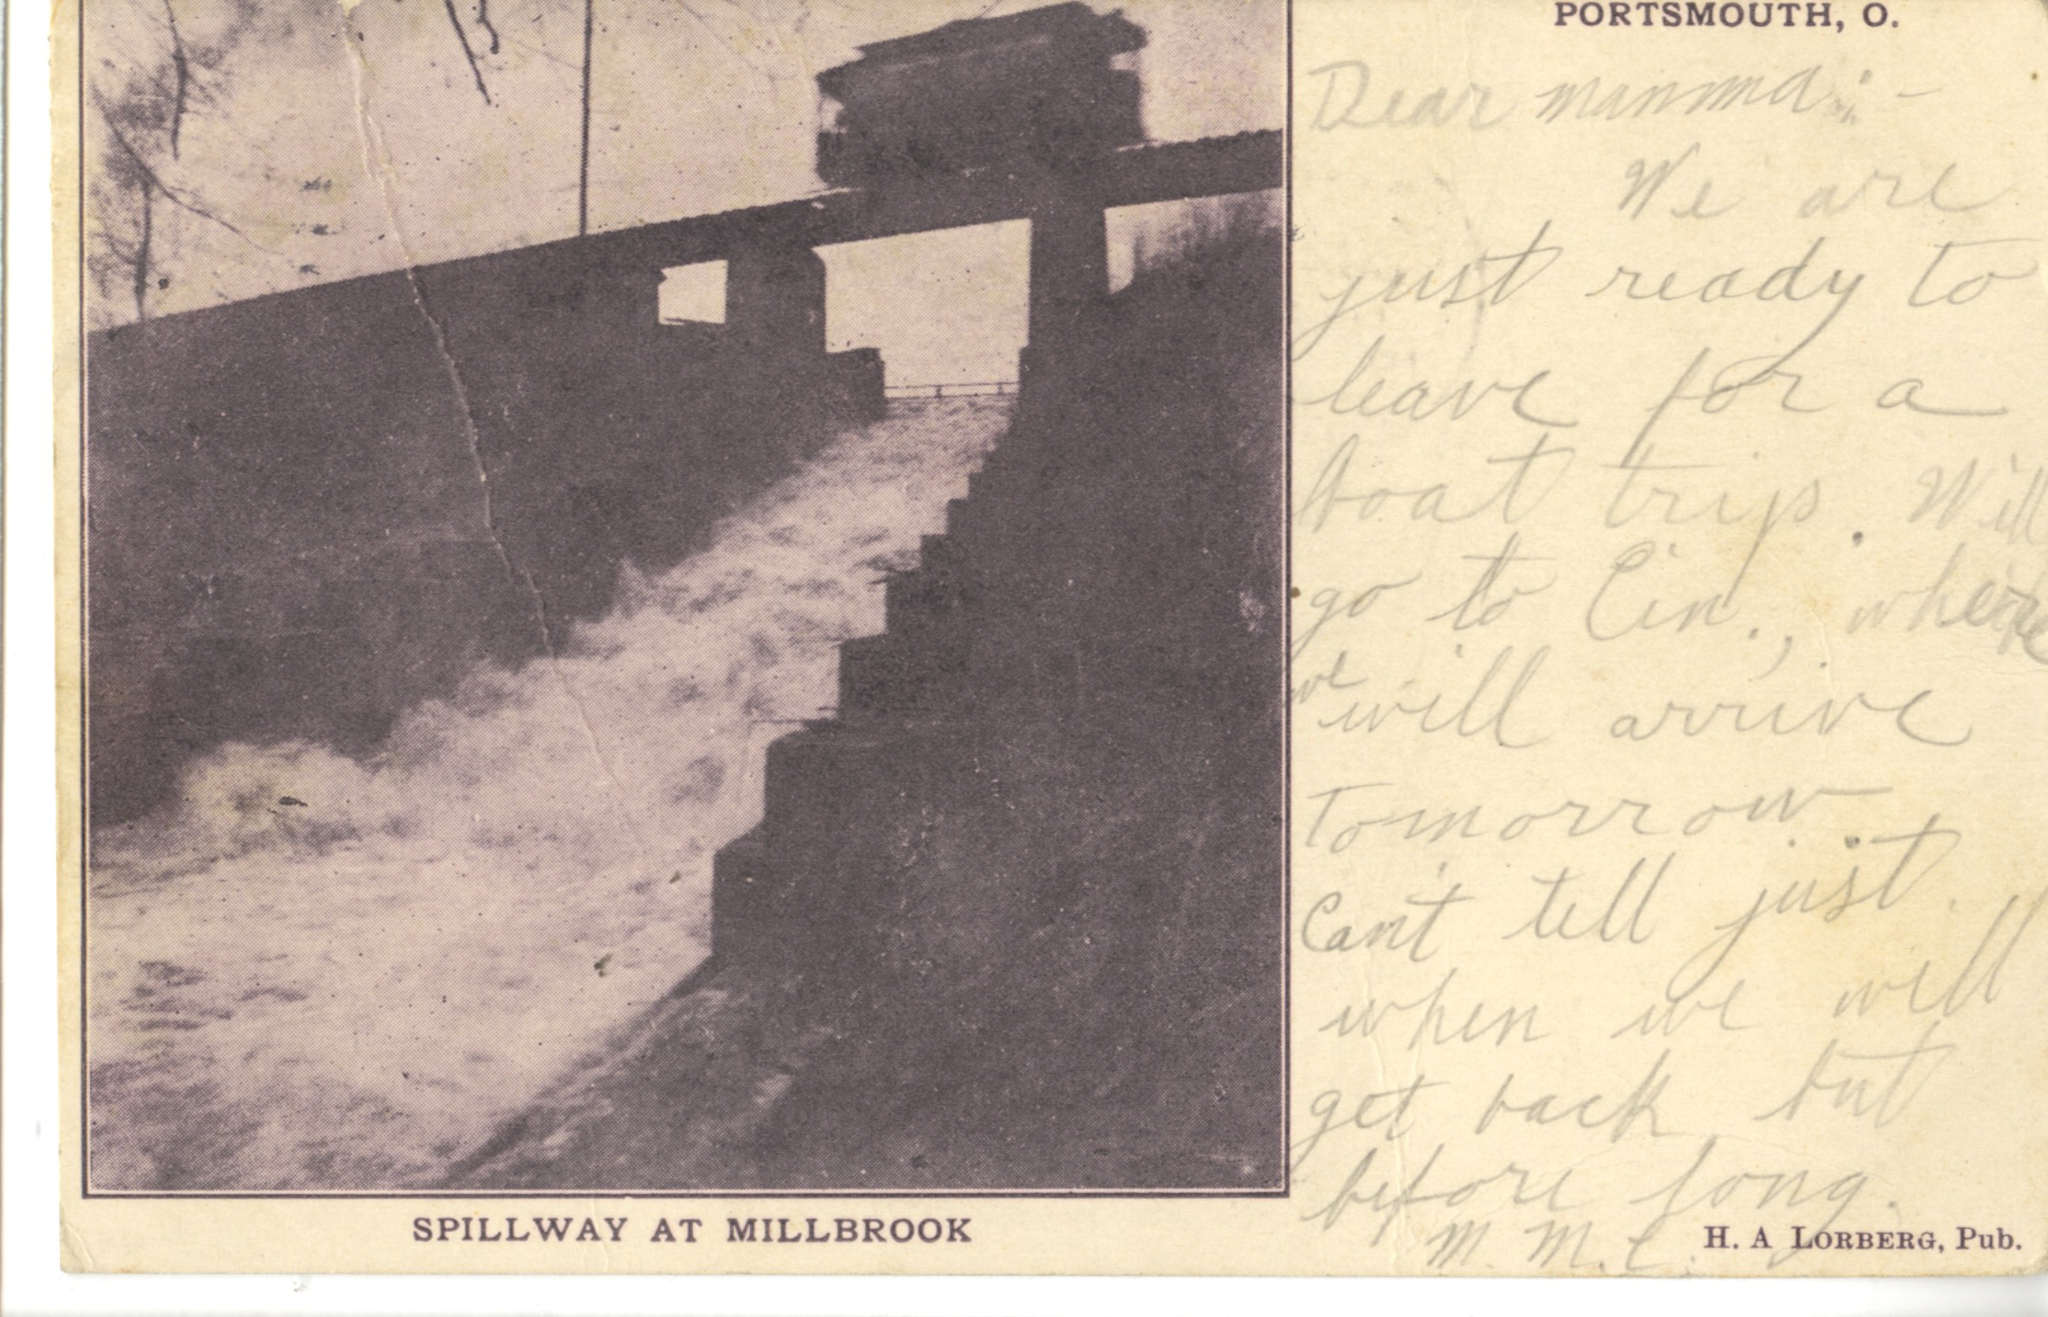 PORTSMOUTH, O.
Dear mamma:-
We are
just ready to
leave for a
boat trip. Will
go to Cin., where
we will arrive
tomorrow
Can't tell just
when we will
get back but
before long.
M. M. C.
SPILLWAY AT MILLBROOK
H. A LORBERG, Pub.